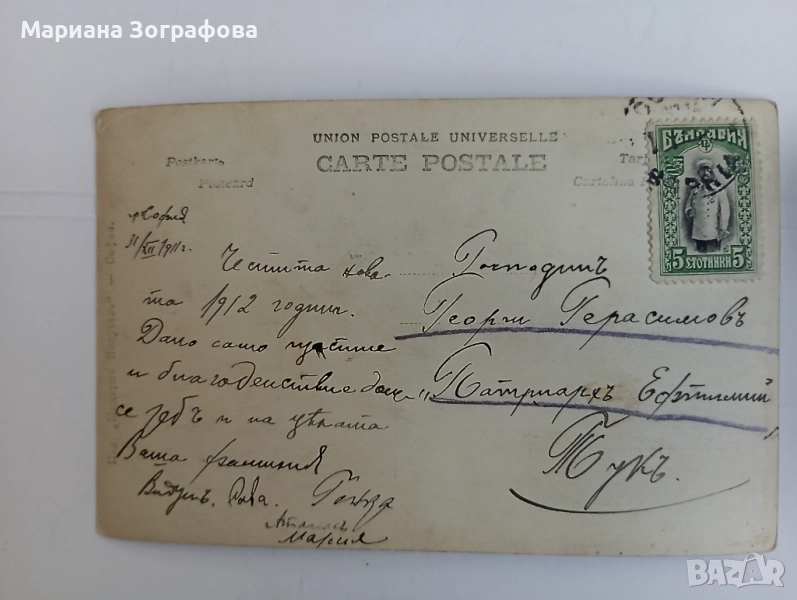 Мариана Зографова
UNION POSTALE UNIVERSELLE
CARTE POSTALE
Postkarte
Postcard
БЪЛГАРИЯ
5 СТОТИНКИ 5
София
31/XII 1911 г.
Честита нова
та 1912 година.
Дано само щастие
и благоденствие
се и на цѣлата
Ваша фамилия
Мария
Господинъ
Георги Герасимовъ
"Патриархъ Ефтимий"
Тукъ.
BAZAR